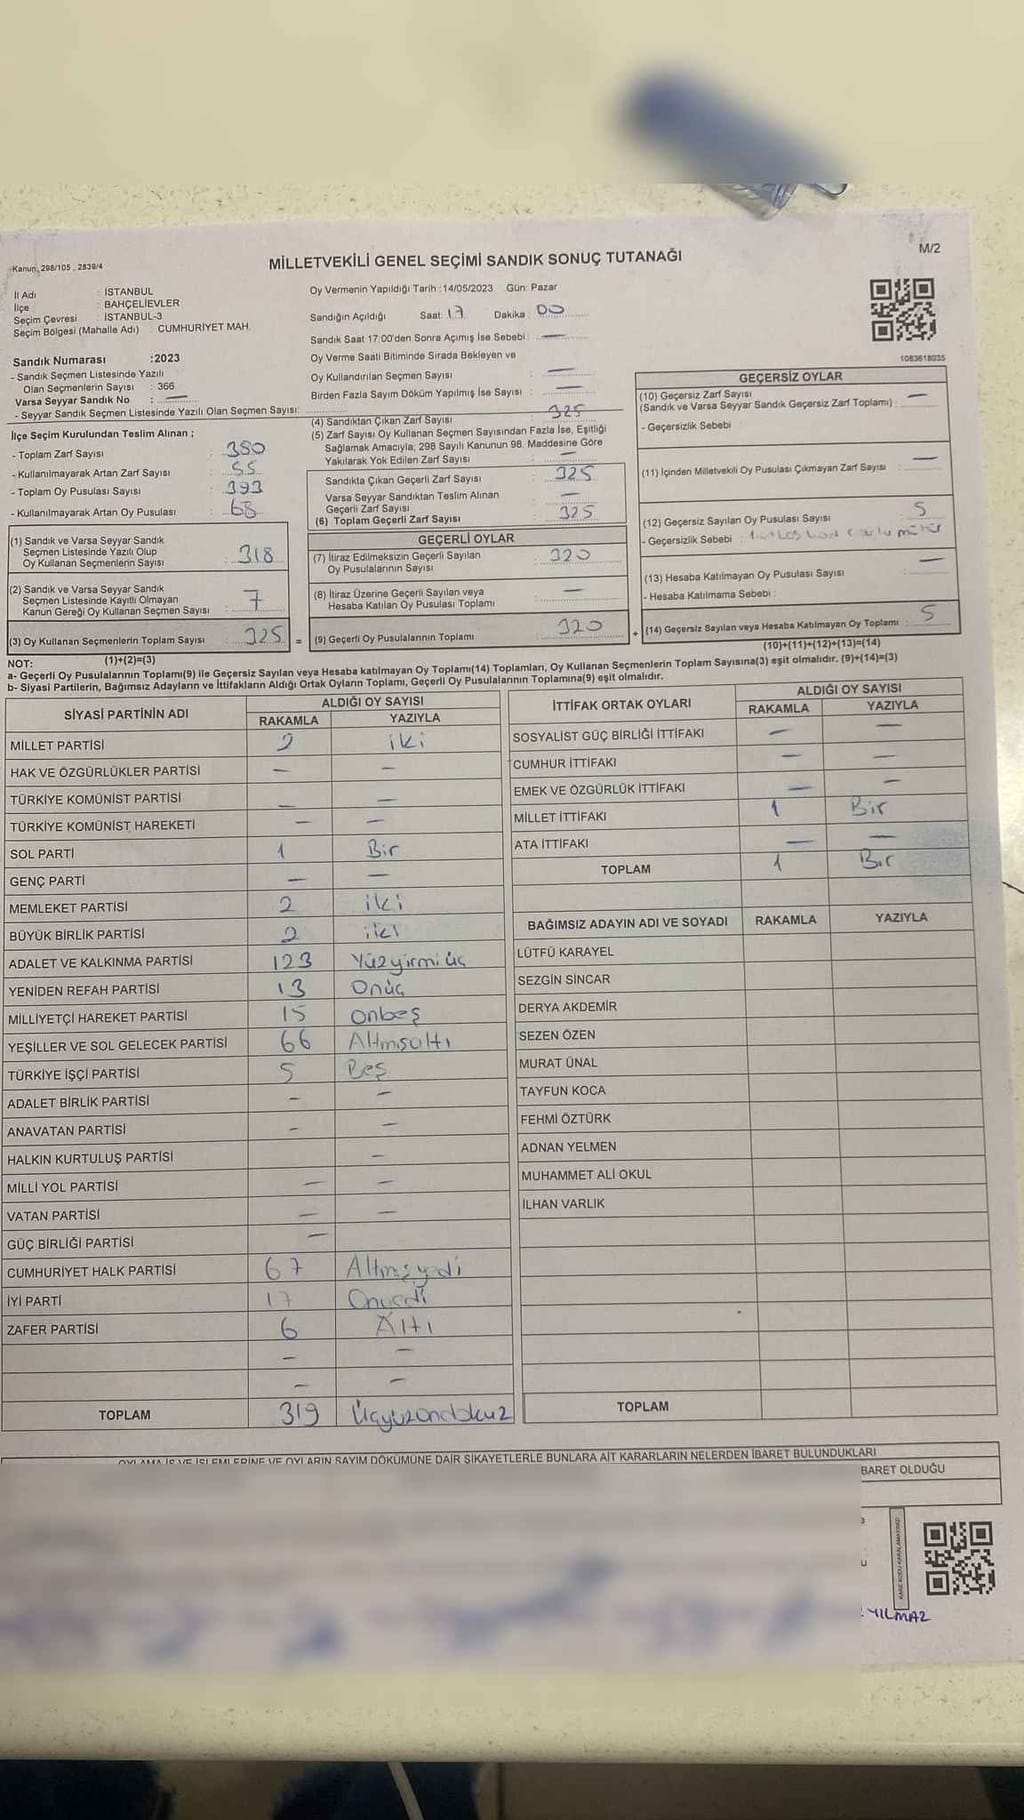 M/2
Kanun, 298/105 , 2839/4
MİLLETVEKİLİ GENEL SEÇİMİ SANDIK SONUÇ TUTANAĞI
İl Adı : İSTANBUL
İlçe : BAHÇELİEVLER
Seçim Çevresi : İSTANBUL-3
Seçim Bölgesi (Mahalle Adı) : CUMHURİYET MAH.
Sandık Numarası :2023
- Sandık Seçmen Listesinde Yazılı
Olan Seçmenlerin Sayısı : 366
Varsa Seyyar Sandık No : —
- Seyyar Sandık Seçmen Listesinde Yazılı Olan Seçmen Sayısı:
İlçe Seçim Kurulundan Teslim Alınan ;
- Toplam Zarf Sayısı : 380
- Kullanılmayarak Artan Zarf Sayısı : 55
- Toplam Oy Pusulası Sayısı : 393
- Kullanılmayarak Artan Oy Pusulası : 68
(1) Sandık ve Varsa Seyyar Sandık
Seçmen Listesinde Yazılı Olup
Oy Kullanan Seçmenlerin Sayısı : 318
(2) Sandık ve Varsa Seyyar Sandık
Seçmen Listesinde Kayıtlı Olmayan
Kanun Gereği Oy Kullanan Seçmen Sayısı : 7
(3) Oy Kullanan Seçmenlerin Toplam Sayısı : 325 =
(1)+(2)=(3)
Oy Vermenin Yapıldığı Tarih :14/05/2023 Gün: Pazar
Sandığın Açıldığı Saat: 17 Dakika : 00
Sandık Saat 17:00'den Sonra Açımış İse Sebebi : —
Oy Verme Saati Bitiminde Sırada Bekleyen ve
Oy Kullandırılan Seçmen Sayısı : —
Birden Fazla Sayım Döküm Yapılmış İse Sayısı : —
(4) Sandıktan Çıkan Zarf Sayısı : 325
(5) Zarf Sayısı Oy Kullanan Seçmen Sayısından Fazla İse, Eşitliği
Sağlamak Amacıyla, 298 Sayılı Kanunun 98. Maddesine Göre
Yakılarak Yok Edilen Zarf Sayısı : —
Sandıkta Çıkan Geçerli Zarf Sayısı : 325
Varsa Seyyar Sandıktan Teslim Alınan
Geçerli Zarf Sayısı : —
(6) Toplam Geçerli Zarf Sayısı : 325
GEÇERLİ OYLAR
(7) İtiraz Edilmeksizin Geçerli Sayılan
Oy Pusulalarının Sayısı : 320
(8) İtiraz Üzerine Geçerli Sayılan veya
Hesaba Katılan Oy Pusulası Toplamı : —
(9) Geçerli Oy Pusulalarının Toplamı : 320 +
1083618035
GEÇERSİZ OYLAR
(10) Geçersiz Zarf Sayısı
(Sandık ve Varsa Seyyar Sandık Geçersiz Zarf Toplamı) : —
- Geçersizlik Sebebi :
(11) İçinden Milletvekili Oy Pusulası Çıkmayan Zarf Sayısı : —
(12) Geçersiz Sayılan Oy Pusulası Sayısı : 5
- Geçersizlik Sebebi : mühür
(13) Hesaba Katılmayan Oy Pusulası Sayısı : —
- Hesaba Katılmama Sebebi :
(14) Geçersiz Sayılan veya Hesaba Katılmayan Oy Toplamı : 5
(10)+(11)+(12)+(13)=(14)
NOT:
a- Geçerli Oy Pusulalarının Toplamı(9) ile Geçersiz Sayılan veya Hesaba katılmayan Oy Toplamı(14) Toplamları, Oy Kullanan Seçmenlerin Toplam Sayısına(3) eşit olmalıdır. (9)+(14)=(3)
b- Siyasi Partilerin, Bağımsız Adayların ve İttifakların Aldığı Ortak Oyların Toplamı, Geçerli Oy Pusulalarının Toplamına(9) eşit olmalıdır.
SİYASİ PARTİNİN ADI ALDIĞI OY SAYISI
RAKAMLA YAZIYLA
MİLLET PARTİSİ 2 iki
HAK VE ÖZGÜRLÜKLER PARTİSİ — —
TÜRKİYE KOMÜNİST PARTİSİ — —
TÜRKİYE KOMÜNİST HAREKETİ — —
SOL PARTİ 1 Bir
GENÇ PARTİ — —
MEMLEKET PARTİSİ 2 iki
BÜYÜK BİRLİK PARTİSİ 2 iki
ADALET VE KALKINMA PARTİSİ 123 Yüzyirmi üç
YENİDEN REFAH PARTİSİ 13 Onüç
MİLLİYETÇİ HAREKET PARTİSİ 15 onbeş
YEŞİLLER VE SOL GELECEK PARTİSİ 66 Altmışaltı
TÜRKİYE İŞÇİ PARTİSİ 5 Beş
ADALET BİRLİK PARTİSİ — —
ANAVATAN PARTİSİ — —
HALKIN KURTULUŞ PARTİSİ —
MİLLİ YOL PARTİSİ — —
VATAN PARTİSİ — —
GÜÇ BİRLİĞİ PARTİSİ —
CUMHURİYET HALK PARTİSİ 67 Altmışyedi
İYİ PARTİ 17 Onyedi
ZAFER PARTİSİ 6 Altı
— —
— —
TOPLAM 319 Üçyüzondokuz
İTTİFAK ORTAK OYLARI ALDIĞI OY SAYISI
RAKAMLA YAZIYLA
SOSYALİST GÜÇ BİRLİĞİ İTTİFAKI — —
CUMHUR İTTİFAKI — —
EMEK VE ÖZGÜRLÜK İTTİFAKI — —
MİLLET İTTİFAKI 1 Bir
ATA İTTİFAKI — —
TOPLAM 1 Bir
BAĞIMSIZ ADAYIN ADI VE SOYADI RAKAMLA YAZIYLA
LÜTFÜ KARAYEL
SEZGİN SİNCAR
DERYA AKDEMİR
SEZEN ÖZEN
MURAT ÜNAL
TAYFUN KOCA
FEHMİ ÖZTÜRK
ADNAN YELMEN
MUHAMMET ALİ OKUL
İLHAN VARLIK
TOPLAM
OYLAMA İŞ VE İŞLEMLERİNE VE OYLARIN SAYIM DÖKÜMÜNE DAİR ŞİKAYETLERLE BUNLARA AİT KARARLARIN NELERDEN İBARET BULUNDUKLARI
BARET OLDUĞU
YILMAZ